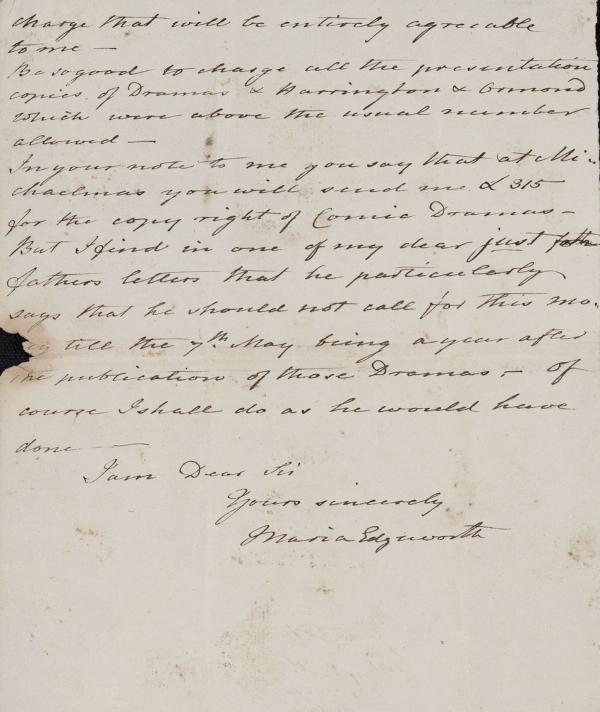 charge that will be entirely agreeable
to me —
Be so good to charge all the presentation
copies of Dramas & Harrington & Ormond
which were above the usual number
allowed —
In your note to me you say that at Mi-
chaelmas you will send me £315
for the copy right of Comic Dramas —
But I find in one of my dear just
fathers letters that he particularly
says that he should not call for this mo-
ey till the 7th May being a year after
the publication of those Dramas — Of
course I shall do as he would have
done —
I am Dear Sir
Yours sincerely
Maria Edgeworth